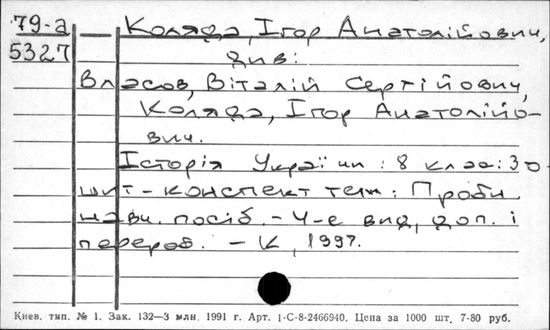 79-а
5327
Коляда, Ігор Анатолійович,
див:
Власов, Віталій Сергійович,
Коляда, Ігор Анатолійо-
вич.
Історія України : 8 клас : Зо-
шит-конспект тем : Пробн.
навч. посіб. - 4-е вид, доп. і
перероб. - К, 1997.
Киев. тип. № 1. Зак. 132—3 млн. 1991 г. Арт. 1-С-8-2466940. Цена за 1000 шт. 7-80 руб.